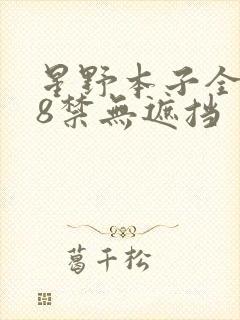 星野本子全
8禁無遮挡
葛千松